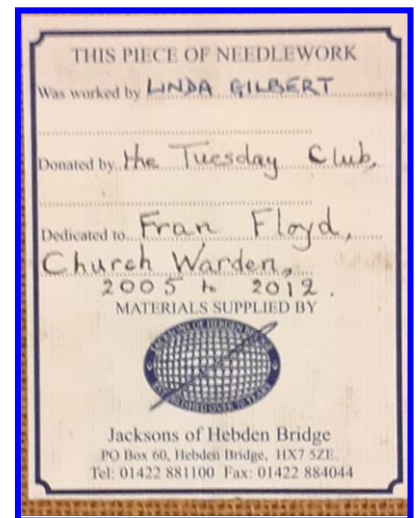 THIS PIECE OF NEEDLEWORK
Was worked by LINDA GILBERT
Donated by the Tuesday Club,
Dedicated to Fran Floyd,
Church Warden,
2005 to 2012.
MATERIALS SUPPLIED BY
JACKSONS OF HEBDEN BRIDGE
ESTABLISHED OVER 70 YEARS
Jacksons of Hebden Bridge
PO Box 60, Hebden Bridge, HX7 5ZE.
Tel: 01422 881100 Fax: 01422 884044